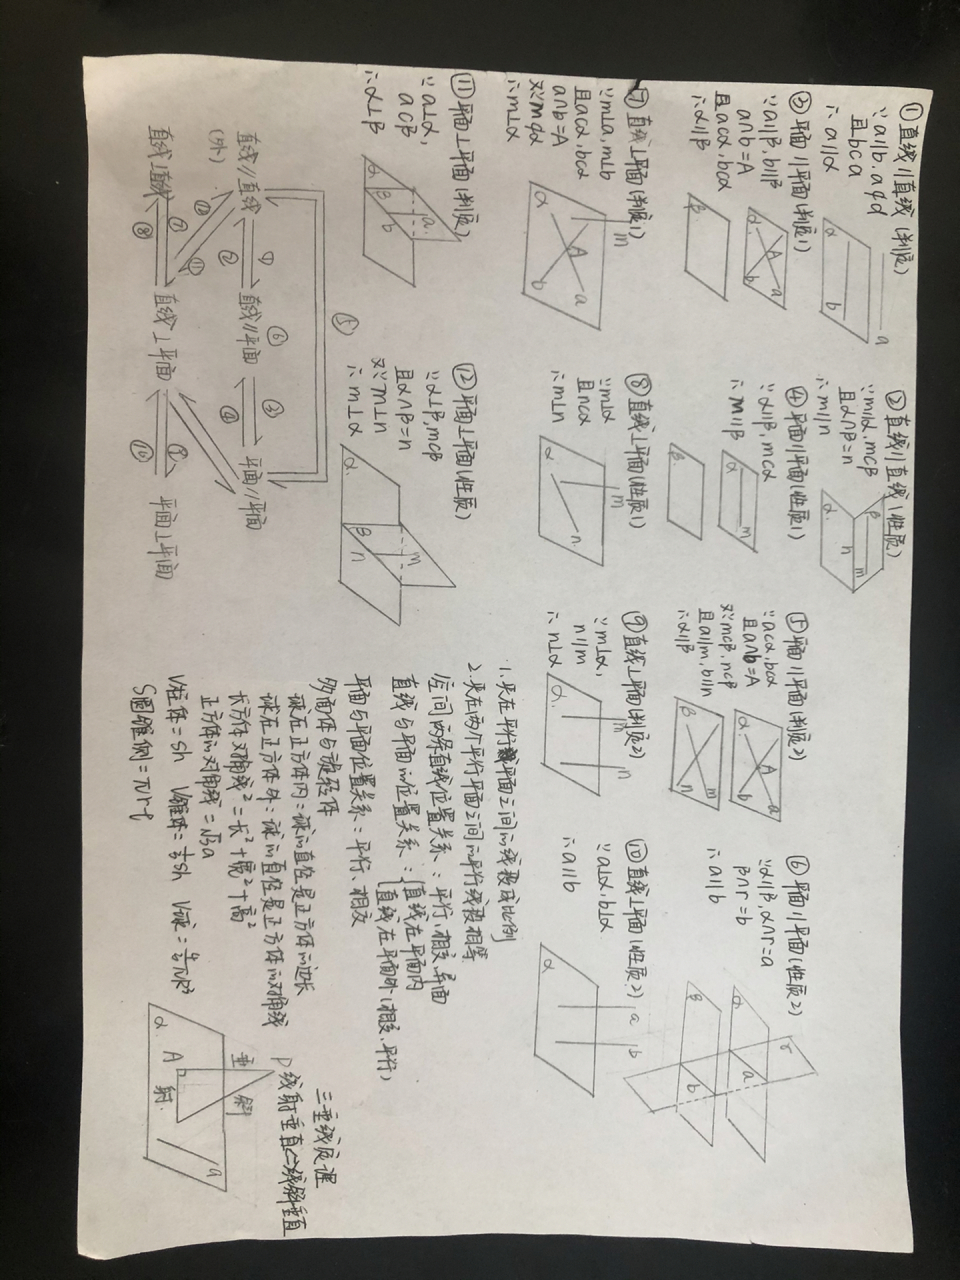 ①直线∥直线(判定)
∵a∥b,a⊄α
且b⊂a
∴a∥α
α
b
a
②直线∥直线(性质)
∵m∥α,m⊂β
且α∩β=n
∴m∥n
α
β
n
m
③平面∥平面(判定1)
∵a∥β,b∥β
a∩b=A
且a⊂α,b⊂α
∴α∥β
α
A
a
b
β
④平面∥平面(性质1)
∵α∥β,m⊂α
∴m∥β
α
m
β
⑤平面∥平面(判定2)
∵a⊂α,b⊂α
且a∩b=A
又∵m⊂β,n⊂β
且a∥m,b∥n
∴α∥β
α
A
a
b
β
m
n
⑥平面∥平面(性质2)
∵α∥β,α∩r=a
β∩r=b
∴a∥b
α
r
a
β
b
⑦直线⊥平面(判定1)
∵m⊥a,m⊥b
且a⊂α,b⊂α
a∩b=A
又∵m⊄α
∴m⊥α
α
A
a
b
m
⑧直线⊥平面(性质1)
∵m⊥α
且n⊂α
∴m⊥n
α
m
n
⑨直线⊥平面(判定2)
∵m⊥α,
n∥m
∴n⊥α
α
m
n
⑩直线⊥平面(性质2)
∵a⊥α,b⊥α
∴a∥b
α
a
b
⑪平面⊥平面(判定)
∵a⊥α,
a⊂β
∴α⊥β
α
β
a
b
⑫平面⊥平面(性质)
∵α⊥β,m⊂β
且α∩β=n
又∵m⊥n
∴m⊥α
α
β
m
n
⑤
直线∥直线
(外)
①
②
直线∥平面
⑥
③
④
平面∥平面
⑩
⑪
直线⊥直线
⑦
⑧
直线⊥平面
平面⊥平面
1.夹在平行平面之间的线段成比例
2.夹在两个平行平面之间的平行线段相等
空间两条直线位置关系:平行、相交、异面
直线与平面的位置关系:{直线在平面内
直线在平面外(相交、平行)
平面与平面位置关系:平行、相交
多面体与旋转体
球在正方体内:球的直径是正方体的边长
球在正方体外:球的直径是正方体的对角线
长方体对角线²=长²+宽²+高²
正方体的对角线=√3a
V柱体=sh V锥体=⅓sh V球=4/3πR³
S圆锥侧=πrl
三垂线定理
线射垂直⇔线斜垂直
P
垂
斜
α
A
射
a